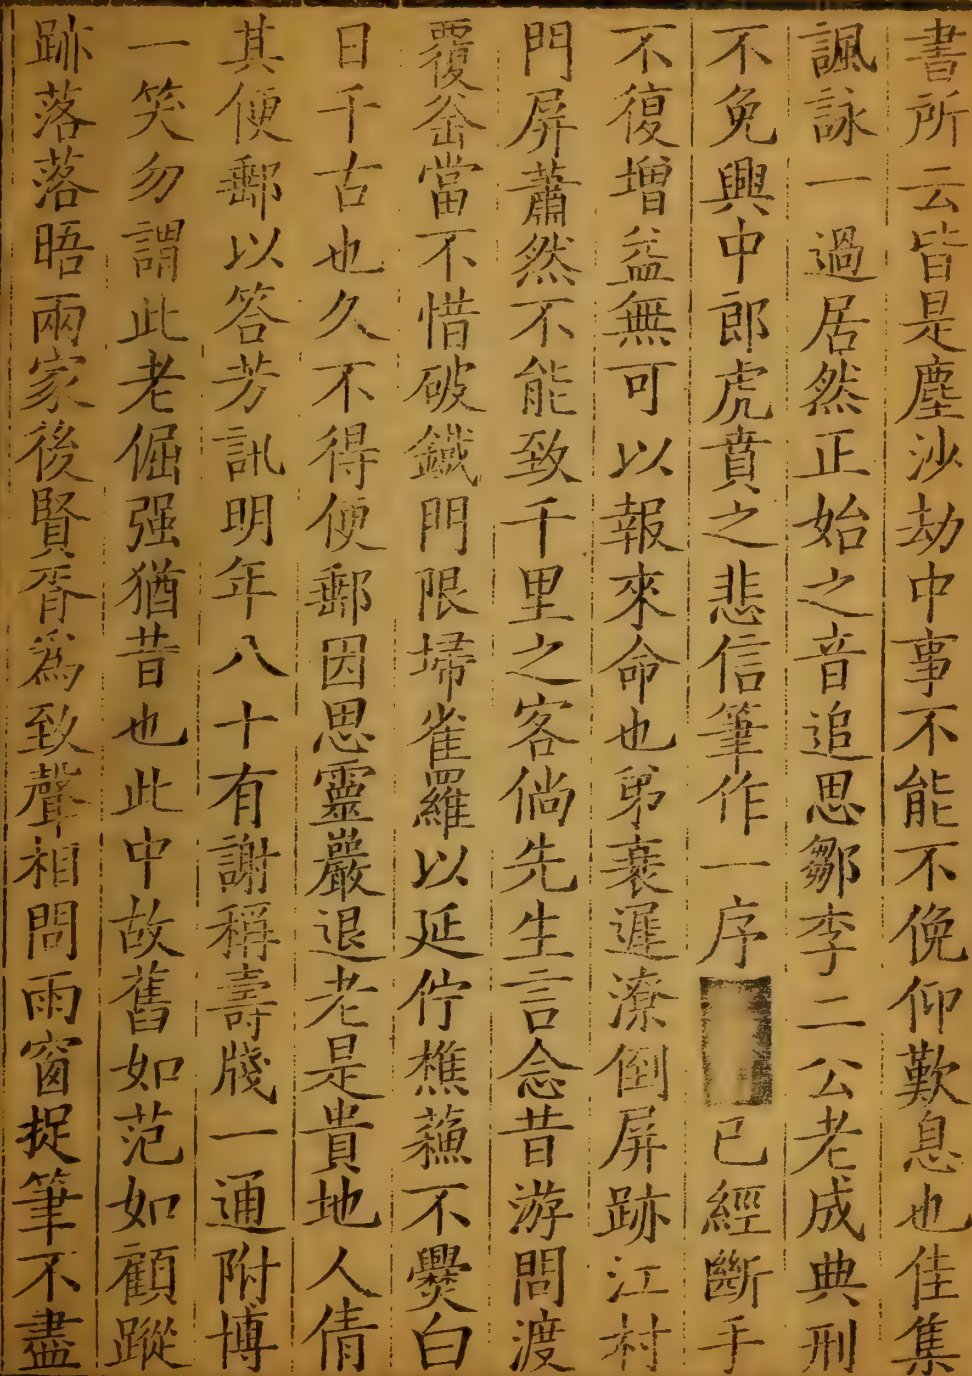 書所云皆是塵沙劫中事不能不俛仰歎息也佳集
諷詠一過居然正始之音追思鄒李二公老成典刑
不免興中郎虎賁之悲信筆作一序已經斷手
不復增益無可以報來命也弟衰遲潦倒屏跡江村
門屏蕭然不能致千里之客倘先生言念昔游問渡
覆釜當不惜破鐵門限埽雀羅以延佇樵蘓不爨白
日千古也久不得便郵因思靈巖退老是貴地人倩
其便郵以答芳訊明年八十有謝稱壽牋一通附博
一笑勿謂此老倔强猶昔也此中故舊如范如顧蹤
跡落落晤兩家後賢胥為致聲相問雨窗捉筆不盡